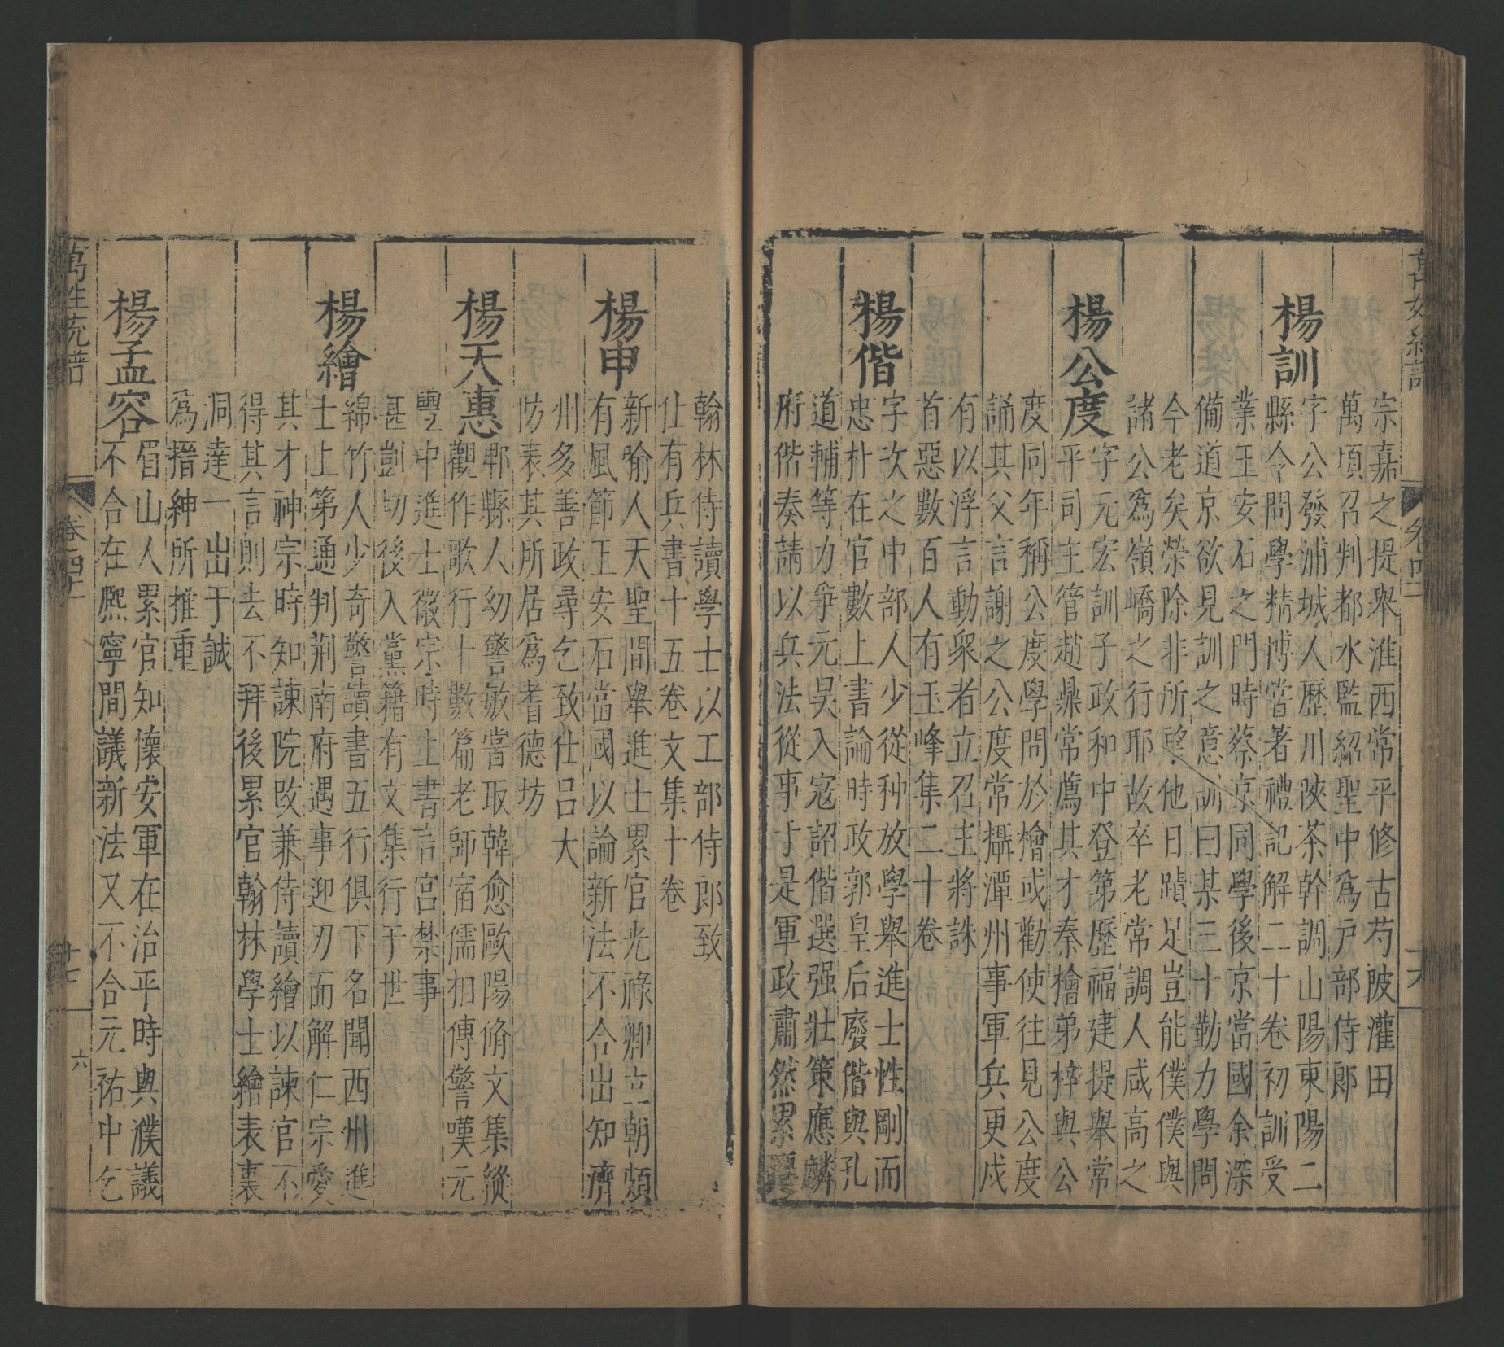 萬姓統譜
卷四二
十六
宗嘉之提舉淮西常平修古芍陂灌田
萬頃召判都水監紹聖中爲戸部侍郎
楊訓
字公發浦城人歷川陝茶幹調山陽東陽二
縣令問學精博嘗著禮記解二十卷初訓受
業王安石之門時蔡京同學後京當國余深
備道京欲見訓之意訓曰某三十勤力學問
今老矣榮除非所望他日蹟足豈能僕僕與
諸公爲嶺嶠之行耶故卒老常調人咸高之
楊公度
字元宏訓子政和中登第歷福建提舉常
平司主管趙鼎常薦其才秦檜弟梓與公
度同年稱公度學問於檜或勸使往見公度
誦其父言謝之公度常攝潭州事軍兵更戍
有以浮言動衆者立召主將誅
首惡數百人有玉峰集二十卷
楊偕
字次之中部人少從种放學舉進士性剛而
忠朴在官數上書論時政郭皇后廢偕與孔
道輔等力爭元昊入寇詔偕選强壯策應麟
府偕奏請以兵法從事于是軍政肅然累遷
翰林侍讀學士以工部侍郎致
仕有兵書十五卷文集十卷
楊申
新喻人天聖間舉進士累官光祿卿立朝頗
有風節王安石當國以論新法不合出知濟
州多善政尋乞致仕呂大
防表其所居爲耆德坊
楊天惠
郫縣人幼警敏嘗取韓愈歐陽脩文集縱
觀作歌行十數篇老師宿儒相傳警嘆元
豐中進士徽宗時上書言宮禁事
甚剴切後入黨籍有文集行于世
楊繪
綿竹人少奇警讀書五行俱下名聞西州進
士上第通判荆南府遇事迎刃而解仁宗愛
其才神宗時知諫院改兼侍讀繪以諫官不
得其言則去不拜後累官翰林學士繪表裏
洞達一出于誠
爲搢紳所推重
楊孟容
眉山人累官知懷安軍在治平時與濮議
不合在熈寧間議新法又不合元祐中乞
萬姓統譜
卷四二
十七
六